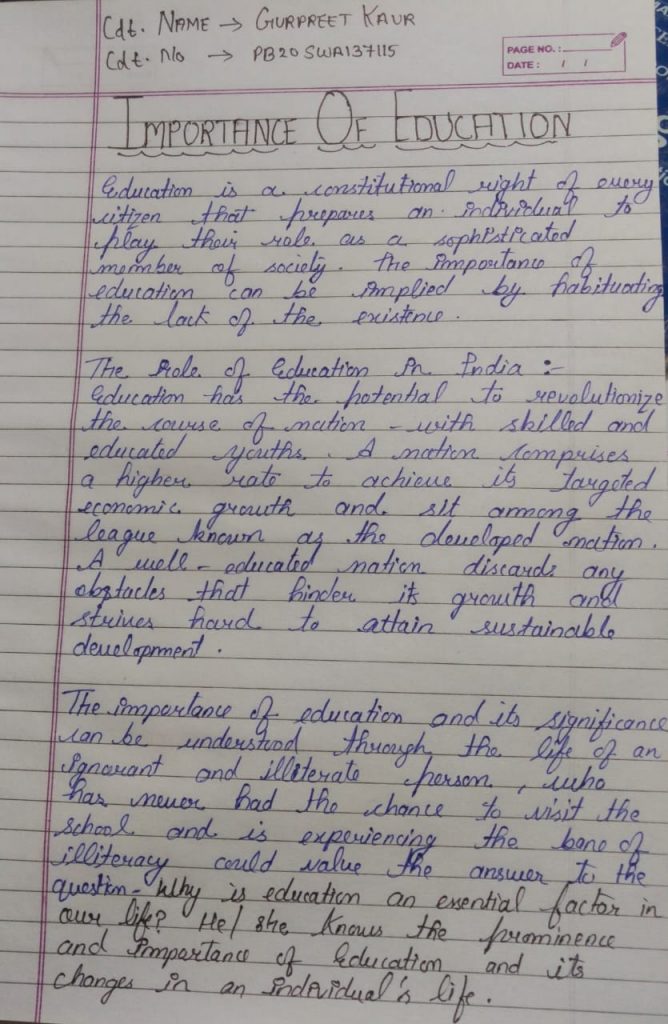 Cdt. NAME → GURPREET KAUR
Cdt. No → PB20SWA137115
PAGE NO.:
DATE: / /
IMPORTANCE OF EDUCATION
Education is a constitutional right of every
citizen that prepares an individual to
play their role as a sophisticated
member of society. The importance of
education can be implied by habituating
the lack of the existence.
The Role of Education in India :-
Education has the potential to revolutionize
the course of nation - with skilled and
educated youths. A nation comprises
a higher rate to achieve its targeted
economic growth and sit among the
league known as the developed nation.
A well-educated nation discards any
obstacles that hinder its growth and
strives hard to attain sustainable
development.
The importance of education and its significance
can be understood through the life of an
ignorant and illiterate person, who
has never had the chance to visit the
school and is experiencing the bane of
illiteracy could value the answer to the
question- Why is education an essential factor in
our life? He/she knows the prominence
and importance of Education and its
changes in an individual's life.